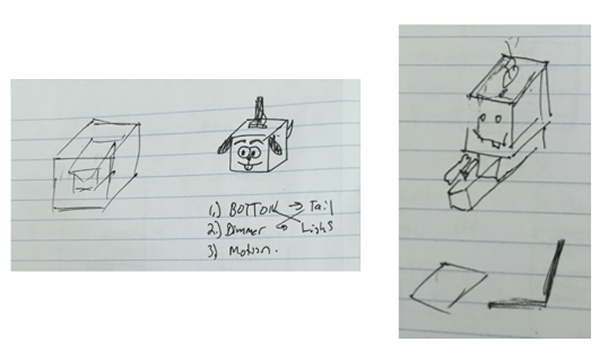 1.) BOTTON → Tail
2.) Dimmer → Light
3) Motion.